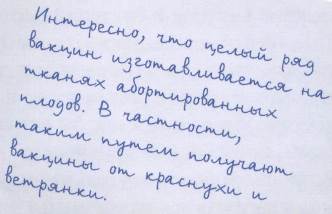 Интересно, что целый ряд
вакцин изготавливается на
тканях абортированных
плодов. В частности,
таким путем получают
вакцины от краснухи и
ветрянки.